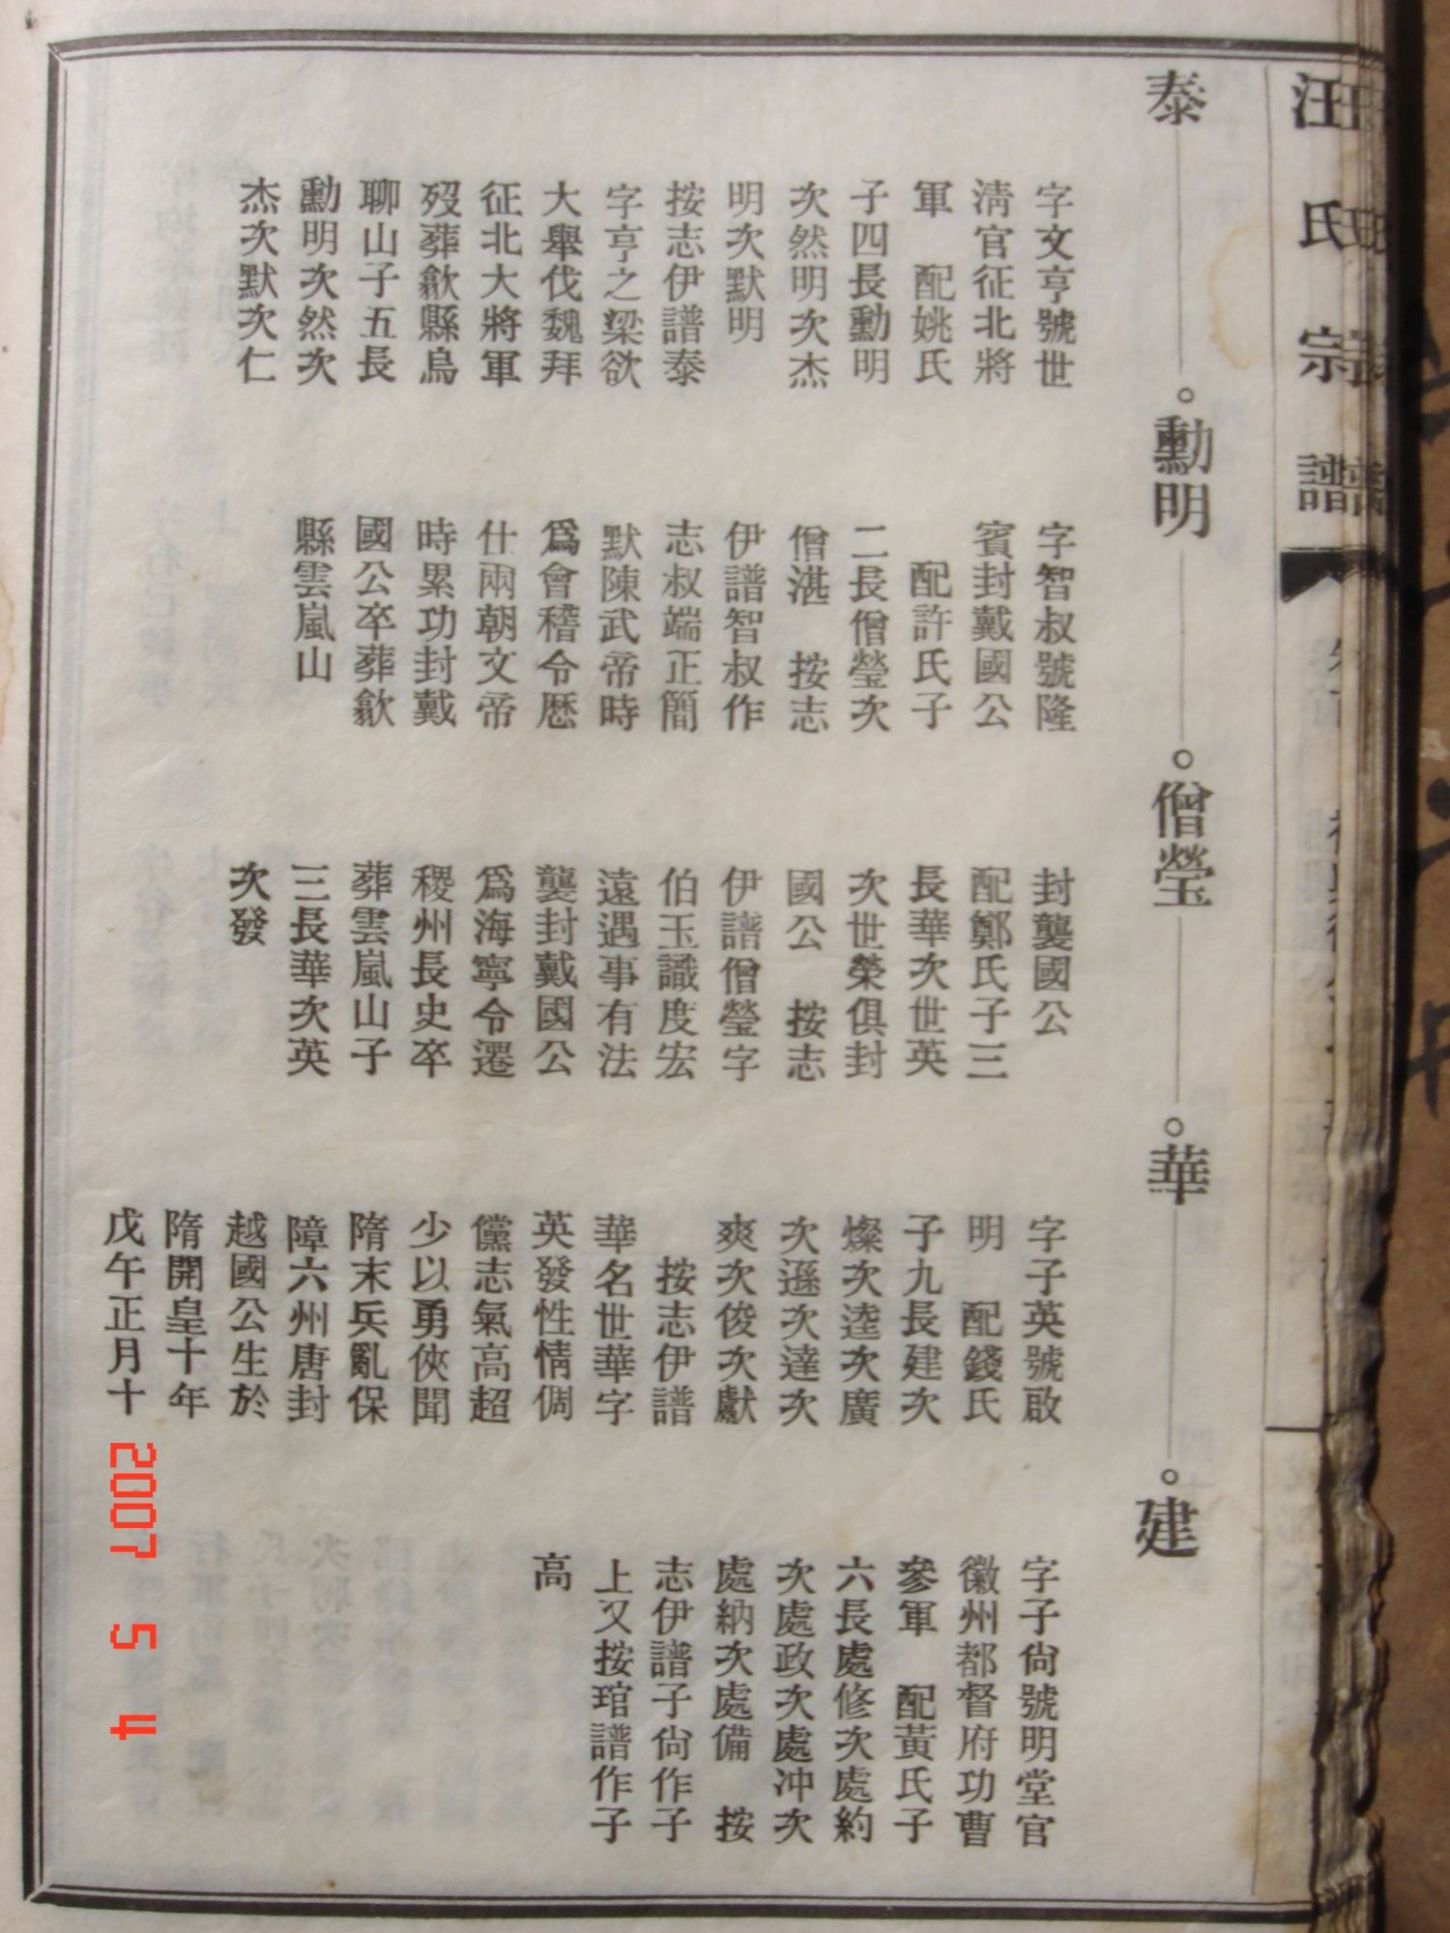 汪氏宗譜
泰
字文亨號世
淸官征北將
軍　配姚氏
子四長勳明
次然明次杰
明次默明
按志伊譜泰
字亨之梁欲
大舉伐魏拜
征北大將軍
歿葬歙縣烏
聊山子五長
勳明次然次
杰次默次仁
勳明
字智叔號隆
賓封戴國公
配許氏子
二長僧瑩次
僧湛　按志
伊譜智叔作
志叔端正簡
默陳武帝時
爲會稽令歷
仕兩朝文帝
時累功封戴
國公卒葬歙
縣雲嵐山
僧瑩
封襲國公
配鄭氏子三
長華次世英
次世榮俱封
國公　按志
伊譜僧瑩字
伯玉識度宏
遠遇事有法
襲封戴國公
爲海寧令遷
稷州長史卒
葬雲嵐山子
三長華次英
次發
華
字子英號啟
明　配錢氏
子九長建次
燦次逵次廣
次遜次達次
爽次俊次獻
按志伊譜
華名世華字
英發性情倜
儻志氣高超
少以勇俠聞
隋末兵亂保
障六州唐封
越國公生於
隋開皇十年
戊午正月十
建
字子尙號明堂官
徽州都督府功曹
參軍　配黃氏子
六長處修次處約
次處政次處冲次
處納次處備　按
志伊譜子尙作子
上又按琯譜作子
高
2007 5 4